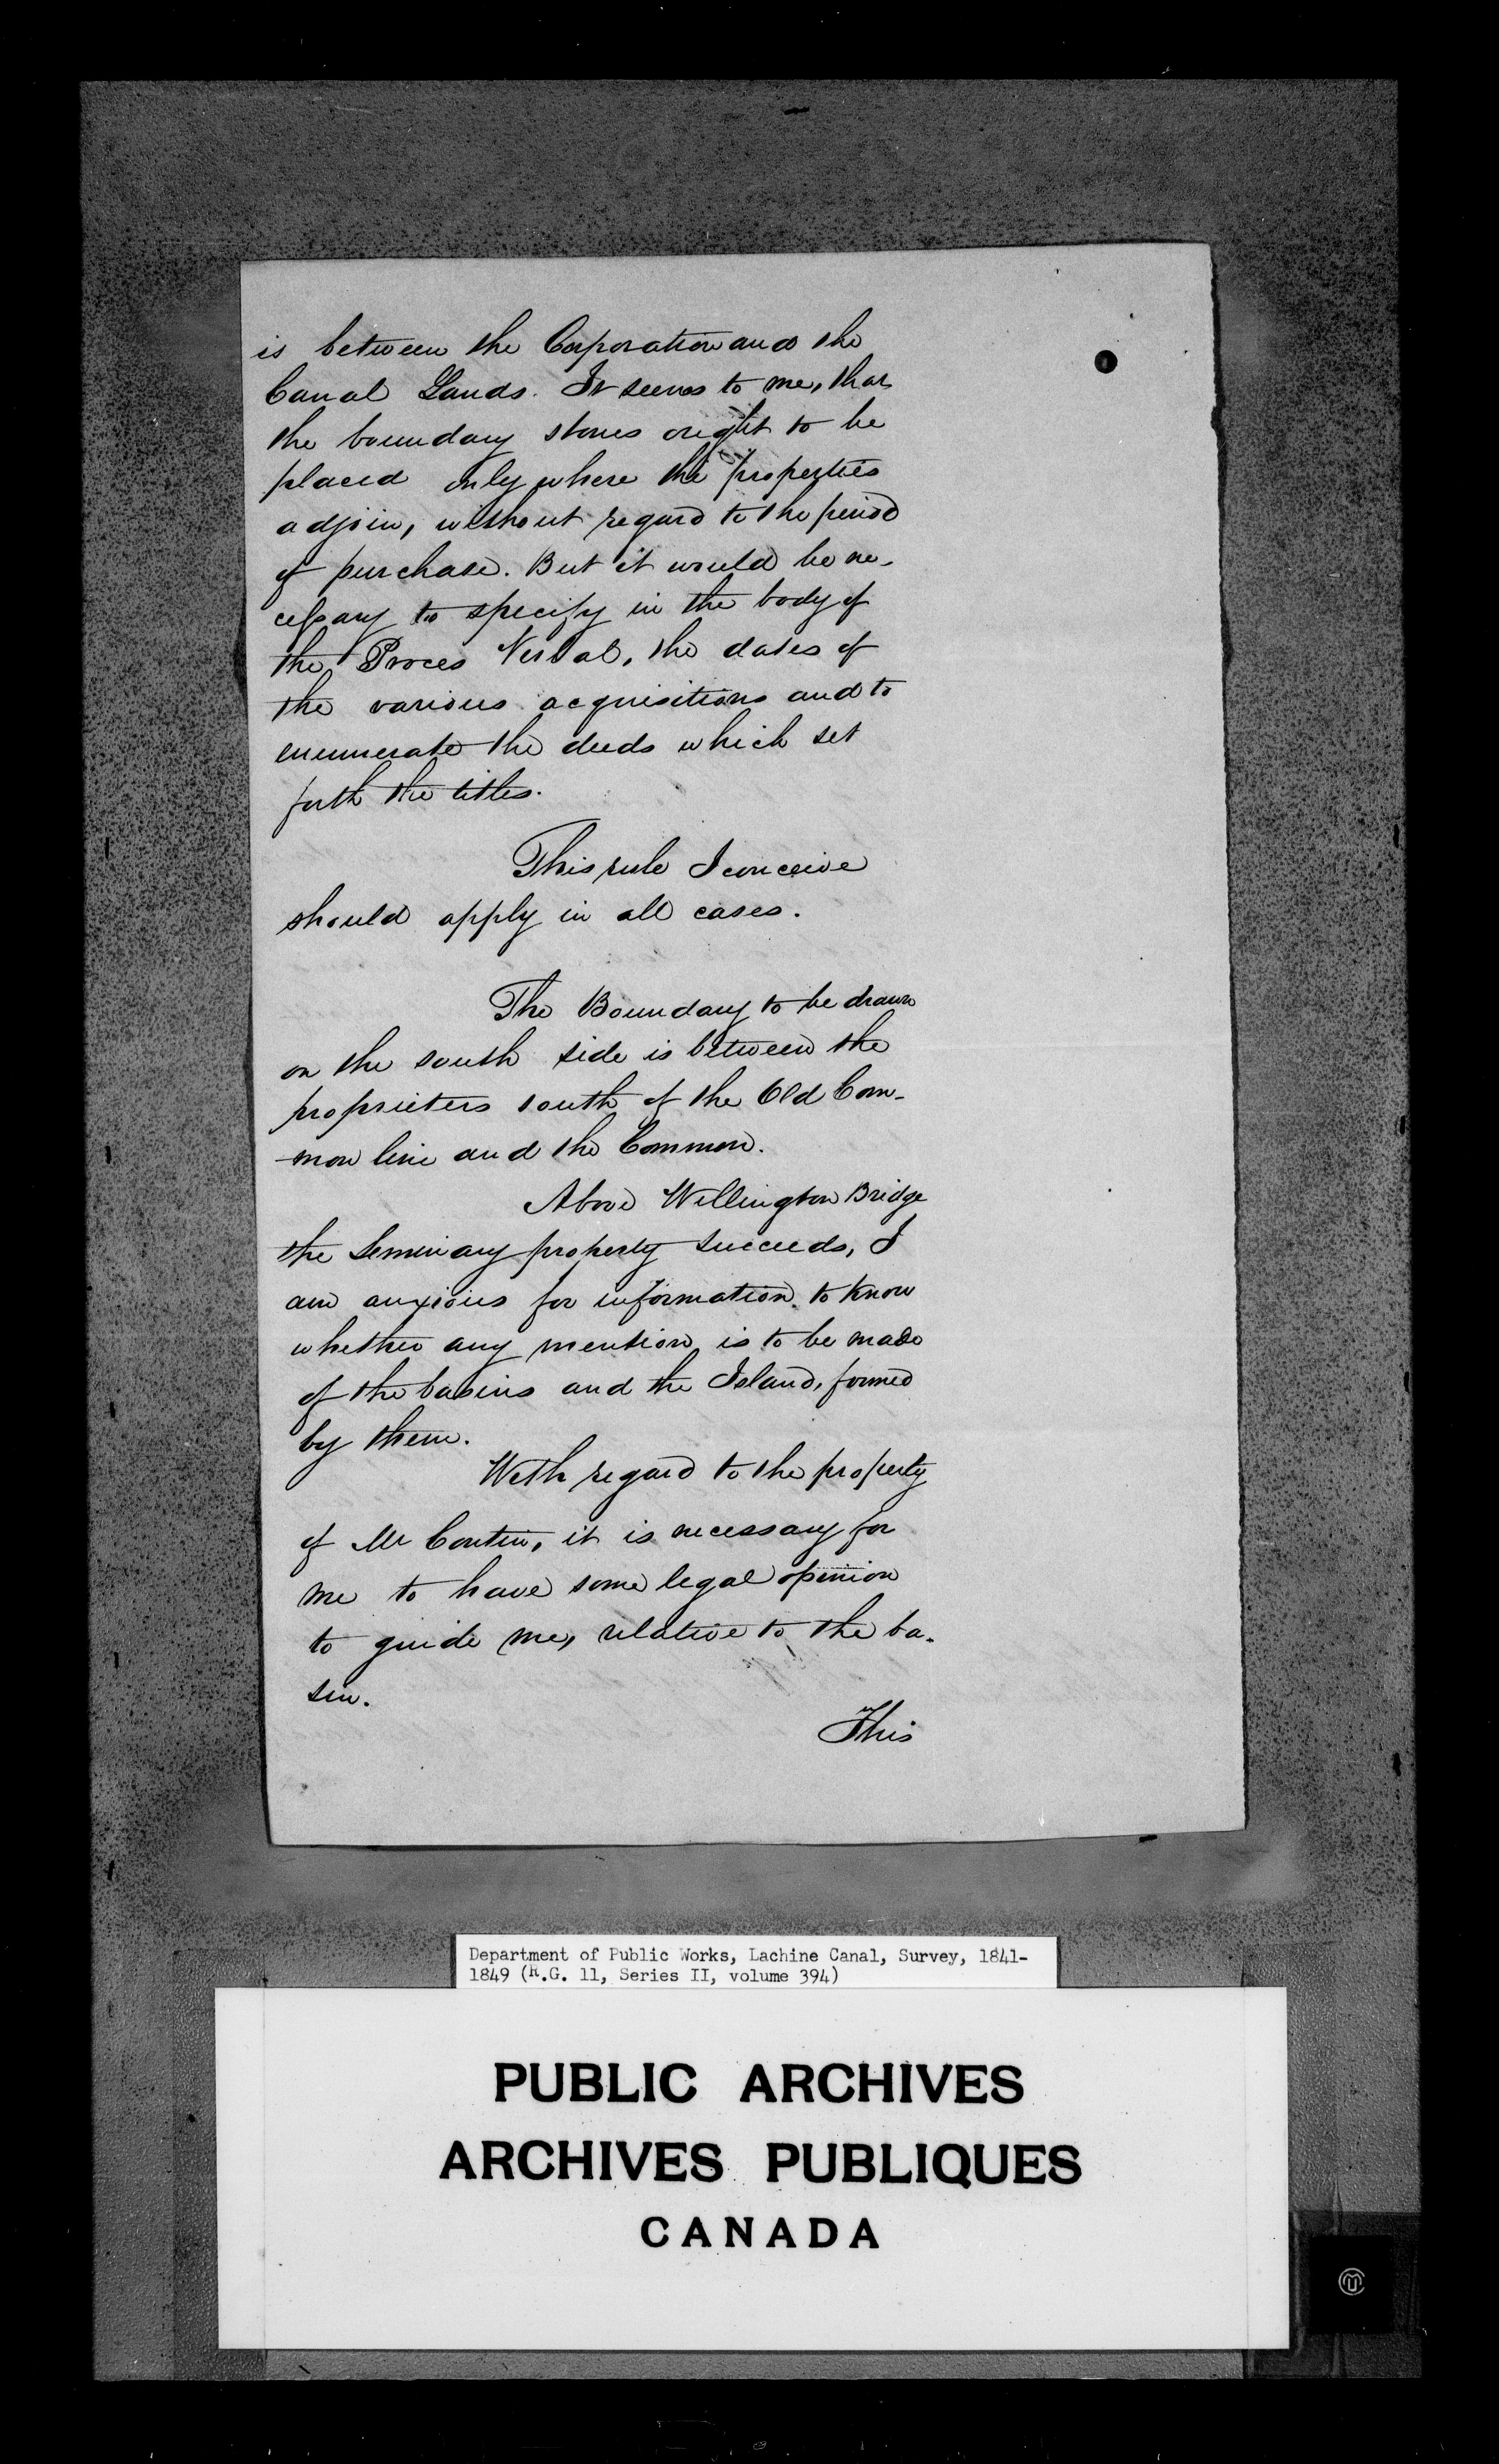 is between the Corporation and the
Canal Lands. It seems to me, that
the boundary stones ought to be
placed only where the properties
adjoin, without regard to the period
of purchase. But it would be ne-
cessary to specify in the body of
the Proces Verbal, the dates of
the various acquisitions and to
enumerate the deeds which set
forth the titles.
This rule I conceive
should apply in all cases.
The Boundary to be drawn
on the south side is between the
proprietors south of the Old Com-
mon line and the Common.
Above Wellington Bridge
the Seminary property succeeds, I
am anxious for information to know
whether any mention is to be made
of the basins and the Island, formed
by them.
With regard to the property
of Mr it is necessary for
me to have some legal opinion
to guide me, relative to the ba-
sin.
This
Department of Public Works, Lachine Canal, Survey, 1841-
1849 (R.G. 11, Series II, volume 394)
PUBLIC ARCHIVES
ARCHIVES PUBLIQUES
CANADA